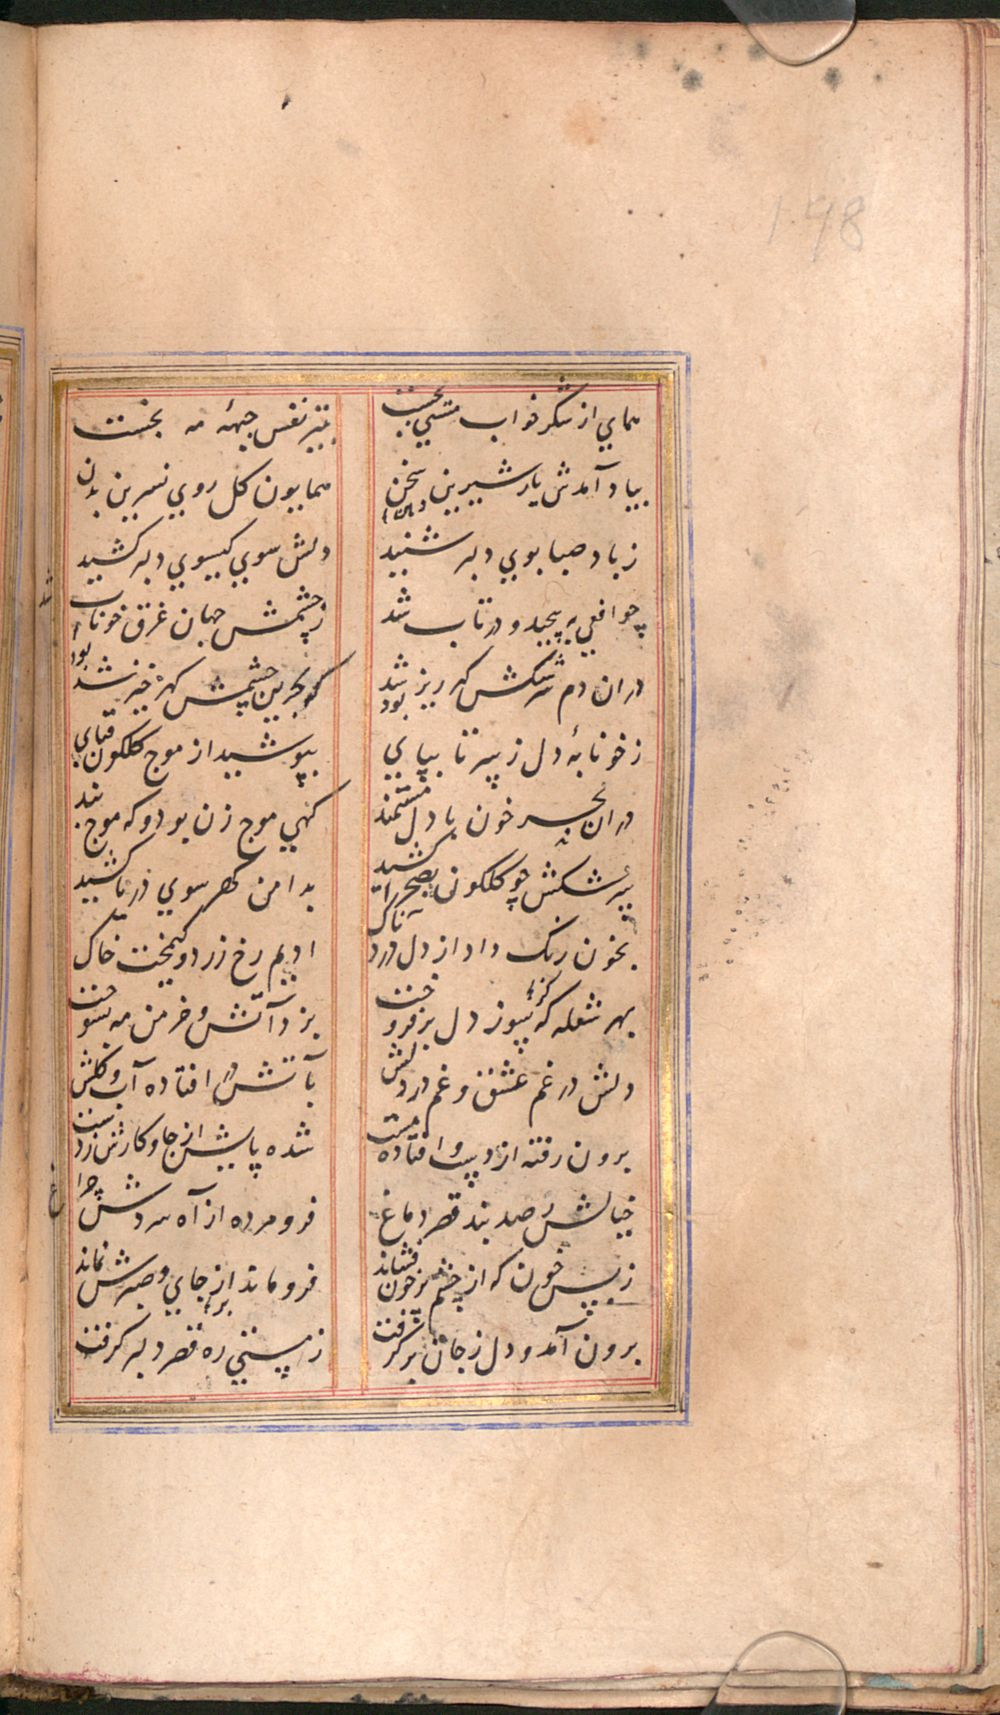 198
همای از شکر خواب مستی بجست
بتیر نفس جبههٔ مه بخست
بیاد آمدش یار شیرین سخن
همایون کل روی نسرین بدن
ز باد صبا بوی دلبر شنید
دلش سوی کیسوی دلبر کشید
چو افعی به پیچید و در تاب شد
ز چشمش جهان غرق خوناب
دران دم سرشکش که ریز شد
بحرین چشمش کهر خیز شد
ز خونابهٔ دل ز سر تا بپای
بپوشید از موج کلکون قبای
دران بحر خون با دل مستمند
کهی موج زن بود و که موج بند
سرشکش چو کلکون بصحرا کشید
بدامن کهر سوی دریا کشید
بخون رنک داد از دل دردناک
ادیم رخ زرد و کیمخت خاک
بهر شعله کز سوز دل برفروخت
بزد آتش و خرمن مه بسوخت
دلش در غم عشق و غم در دلش
بآتش در افتاده آب و کلش
برون رفته از دست و افتاده مست
شده پایش از جا و کارش ز دست
خیالش رصد بند قصر دماغ
فرو مرده از آه سردش چراغ
ز بس خون که از چشم پرخون فشاند
فرو ماند از جای و صبرش نماند
برون آمد و دل ز جان برکرفت
ز مستی ره قصر دلبر کرفت